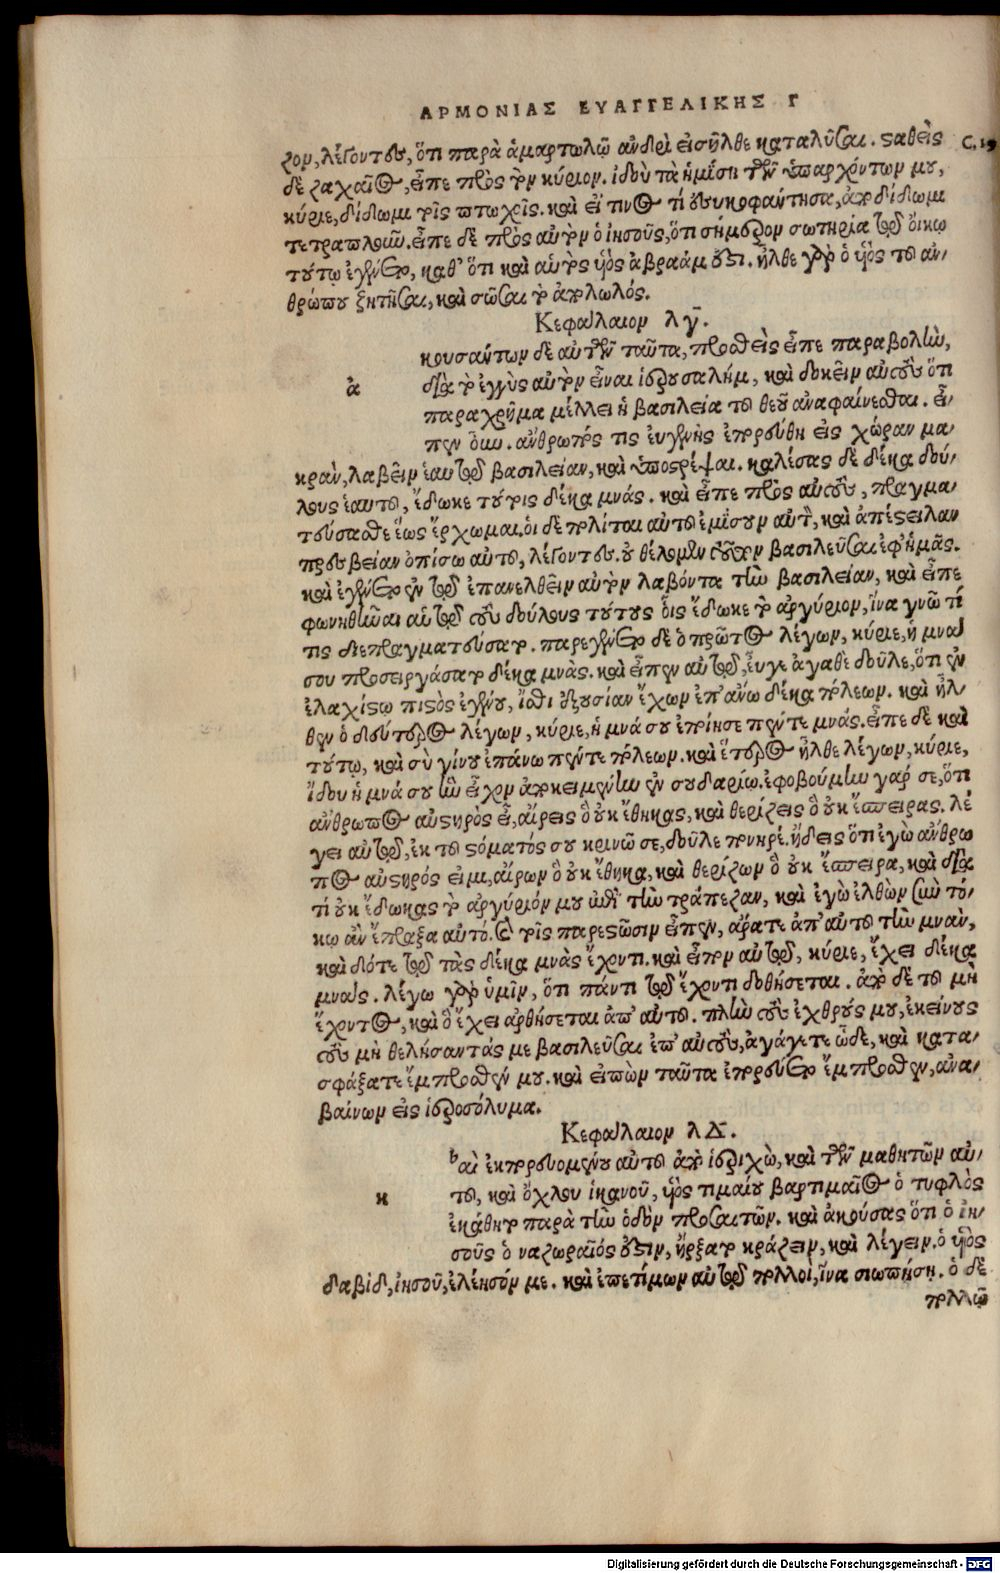 ΑΡΜΟΝΙΑΣ ΕΥΑΓΓΕΛΙΚΗΣ Γ
ζον, λέγοντες, ὅτι παρὰ ἁμαρτωλῷ ἀνδρὶ εἰσῆλθε καταλῦσαι. ϛαθεὶς
δὲ ζαχαῖος, εἶπε πρὸς τὸν κύριον. ἰδοὺ τὰ ἡμίση τῶν ὑπαρχόντων μου,
κύριε, δίδωμι τοῖς πτωχοῖς. καὶ εἴ τινος τί ἐσυκοφάντησα, ἀποδίδωμι
τετραπλοῦν. εἶπε δὲ πρὸς αὐτὸν ὁ ἰησοῦς, ὅτι σήμερον σωτηρία τῷ οἴκῳ
τούτῳ ἐγένετο, καθ' ὅτι καὶ αὐτὸς υἱὸς ἀβραάμ ἐϛι. ἦλθε γὰρ ὁ υἱὸς τοῦ ἀν-
θρώπου ζητῆσαι, καὶ σῶσαι τὸ ἀπολωλός.
Κεφάλαιον λγ.
κουσάντων δὲ αὐτῶν ταῦτα, προσθεὶς εἶπε παραβολὴν,
ἀ
διὰ τὸ ἐγγὺς αὐτὸν εἶναι ἱερουσαλήμ, καὶ δοκεῖν αὐτοὺς ὅτι
παραχρῆμα μέλλει ἡ βασιλεία τοῦ θεοῦ ἀναφαίνεσθαι. εἶ-
πεν οὖν. ἄνθρωπός τις εὐγενὴς ἐπορεύθη εἰς χώραν μα-
κρὰν, λαβεῖν ἑαυτῷ βασιλείαν, καὶ ὑποϛρέψαι. καλέσας δὲ δέκα δού-
λους ἑαυτοῦ, ἔδωκε τούτοις δέκα μνάς. καὶ εἶπε πρὸς αὐτοὺς, πραγμα-
τεύσασθε ἕως ἔρχωμαι. οἱ δὲ πολίται αὐτοῦ ἐμίσουν αὐτὸν, καὶ ἀπέϛειλαν
πρεσβείαν ὀπίσω αὐτοῦ, λέγοντες. οὐ θέλομεν τοῦτον βασιλεῦσαι ἐφ' ἡμᾶς.
καὶ ἐγένετο ἐν τῷ ἐπανελθεῖν αὐτὸν λαβόντα τὴν βασιλείαν, καὶ εἶπε
φωνηθῆναι αὐτῷ τοὺς δούλους τούτους οἷς ἔδωκε τὸ ἀργύριον, ἵνα γνῶ τί
τις διεπραγματεύσατο. παρεγένετο δὲ ὁ πρῶτος λέγων, κύριε, ἡ μνᾶ
σου προσειργάσατο δέκα μνὰς. καὶ εἶπεν αὐτῷ, εὖγε ἀγαθὲ δοῦλε, ὅτι ἐν
ἐλαχίϛῳ πιϛὸς ἐγένου, ἴσθι ἐξουσίαν ἔχων ἐπ' ἄνω δέκα πόλεων. καὶ ἦλ-
θεν ὁ δεύτερος λέγων, κύριε, ἡ μνά σου ἐποίησε πέντε μνάς. εἶπε δὲ καὶ
τούτῳ, καὶ σὺ γίνου ἐπάνω πέντε πόλεων. καὶ ἕτερος ἦλθε λέγων, κύριε,
ἴδου ἡ μνά σου ἣν εἶχον ἀποκειμένην ἐν σουδαρίῳ. ἐφοβούμην γάρ σε, ὅτι
ἄνθρωπος αὐϛηρὸς εἶ, αἴρεις ὃ οὐκ ἔθηκας, καὶ θερίζεις ὃ οὐκ ἔσπειρας. λέ
γει αὐτῷ, ἐκ τοῦ ϛόματός σου κρινῶ σε, δοῦλε πονηρέ. ᾔδεις ὅτι ἐγὼ ἄνθρω
πος αὐϛηρός εἰμι, αἴρων ὃ οὐκ ἔθηκα, καὶ θερίζων ὃ οὐκ ἔσπειρα, καὶ διὰ
τί οὐκ ἔδωκας τὸ ἀργύριόν μου ἐπὶ τὴν τράπεζαν, καὶ ἐγὼ ἐλθὼν σὺν τό-
κῳ ἂν ἔπραξα αὐτό. καὶ τοῖς παρεϛῶσιν εἶπεν, ἄρατε ἀπ' αὐτοῦ τὴν μνᾶν,
καὶ δότε τῷ τὰς δέκα μνὰς ἔχοντι. καὶ εἶπον αὐτῷ, κύριε, ἔχει δέκα
μνᾶς. λέγω γὰρ ὑμῖν, ὅτι πάντι τῷ ἔχοντι δοθήσεται. ἀπὸ δὲ τοῦ μὴ
ἔχοντος, καὶ ὃ ἔχει ἀρθήσεται ἀπ' αὐτοῦ. πλὴν τοὺς ἐχθρούς μου, ἐκείνους
τοὺς μὴ θελήσαντάς με βασιλεῦσαι ἐπ' αὐτοὺς, ἀγάγετε ὧδε, καὶ κατα-
σφάξατε ἔμπροσθέν μου. καὶ εἰπὼν ταῦτα ἐπορεύετο ἔμπροσθεν, ἀνα-
βαίνων εἰς ἱεροσόλυμα.
Κεφάλαιον λΔ.
αὶ ἐκπορευομένου αὐτοῦ ἀπὸ ἱεριχὼ, καὶ τῶν μαθητῶν αὐ-
κ
τοῦ, καὶ ὄχλου ἱκανοῦ, υἱὸς τιμαίου βαρτιμαῖος ὁ τυφλὸς
ἐκάθητο παρὰ τὴν ὁδὸν προσαιτῶν. καὶ ἀκούσας ὅτι ὁ ἰη-
σοῦς ὁ ναζωραῖός ἐϛιν, ἤρξατο κράζειν, καὶ λέγειν. ὁ υἱὸς
δαβὶδ, ἰησοῦ, ἐλέησόν με. καὶ ἐπετίμων αὐτῷ πολλοὶ, ἵνα σιωπήσῃ. ὁ δὲ
πολλῷ
Digitalisierung gefördert durch die Deutsche Forschungsgemeinschaft - DFG